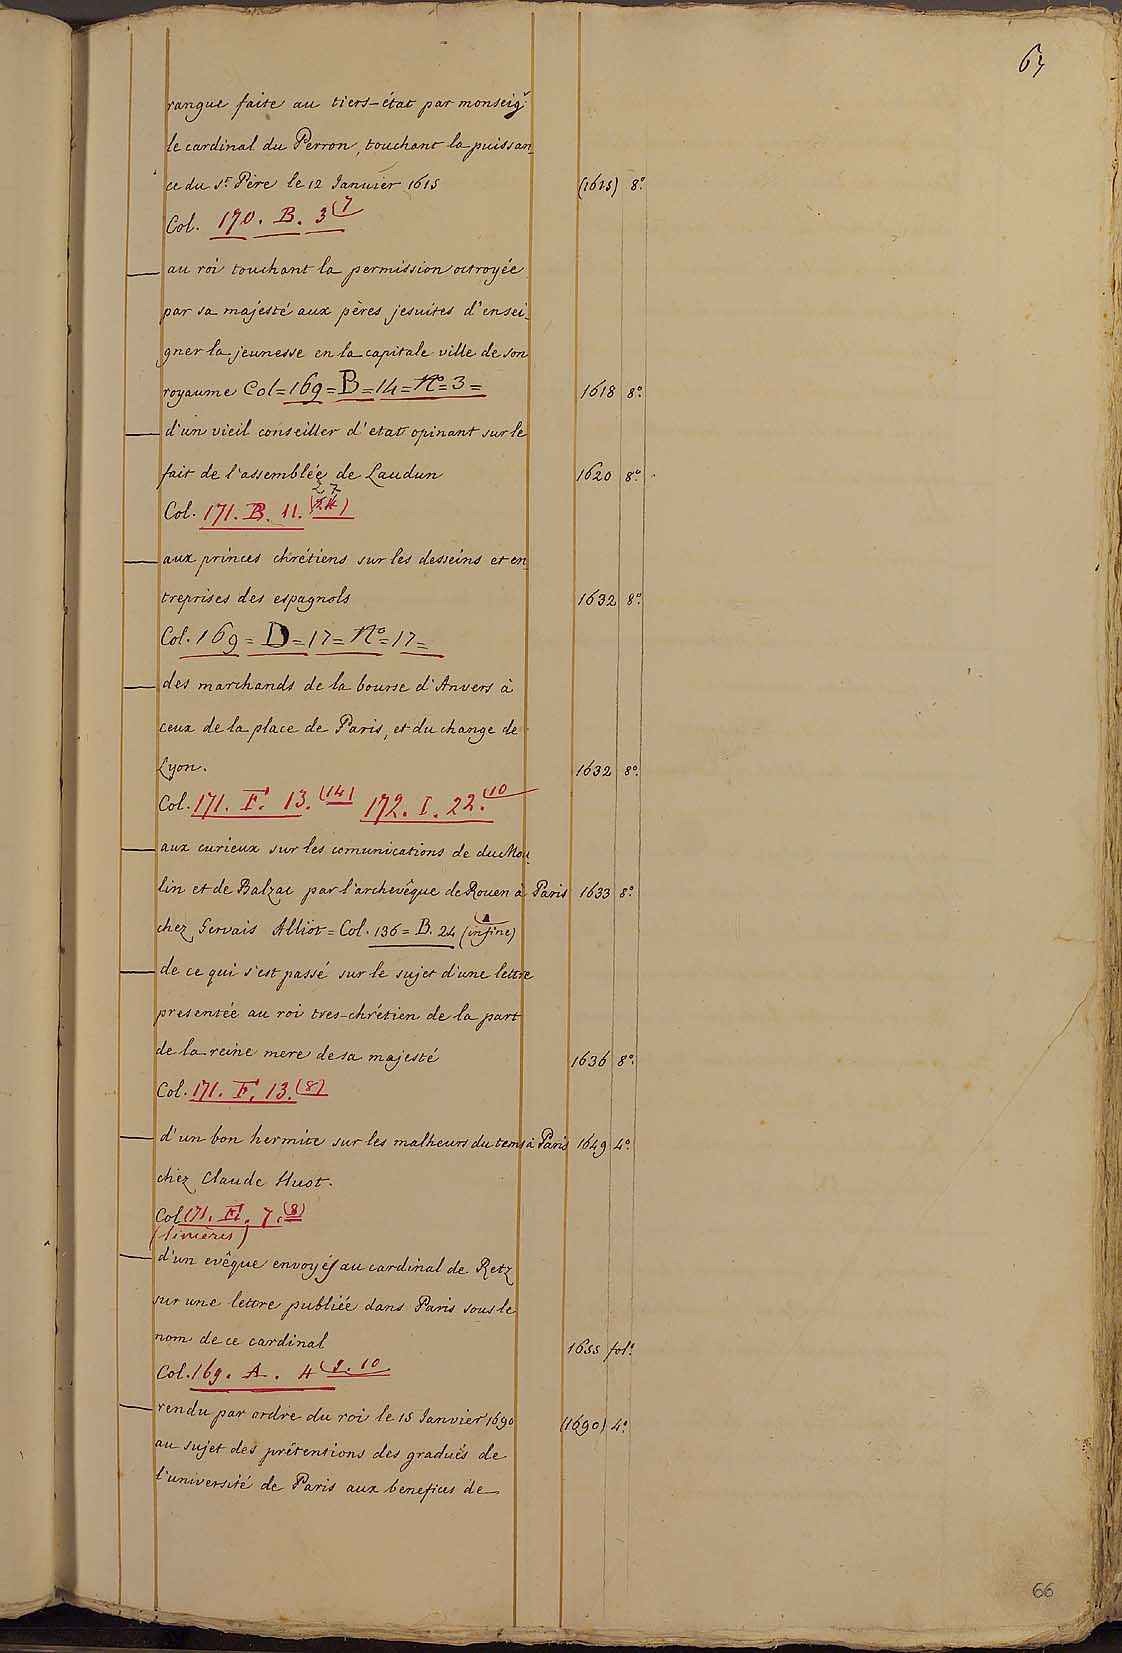 67
rangue faite au tiers-état par monseigr
le cardinal du Perron, touchant la puissan_
ce du St Père le 12 Janvier 1615 (1615) 8°.
Col. 170. B. 3 (7
— au roi touchant la permission octroyée
par sa majesté aux pères jesuites d'ensei_
gner la jeunesse en la capitale ville de son
royaume Col=169=B=14=N°=3= 1618 8°.
— d'un vieil conseiller d'etat opinant sur le
fait de l'assemblée de Laudun 1620 8°.
27
Col. 171. B. 11.
— aux princes chrétiens sur les desseins et en_
treprises des espagnols 1632 8°.
Col. 169=D=17=N°=17=
— des marchands de la bourse d'Anvers à
ceux de la place de Paris, et du change de
Lyon. 1632 8°.
Col. 171. F. 13. (14) 172. I. 22. (10
— aux curieux sur les comunications de du Mou_
lin et de Balzac par l'archevêque de Rouen à Paris 1633 8°.
chez Gervais Alliot = Col. 136 = B. 24 (infine)
— de ce qui s'est passé sur le sujet d'une lettre
presentée au roi tres-chrétien de la part
de la reine mere de sa majesté 1636 8°.
Col. 171. F. 13. (8)
— d'un bon hermite sur les malheurs du tems à Paris 1649 4°.
chez Claude Huot.
Col 171. F. 7. (8)
(linieres)
— d'un evêque envoyés au cardinal de Retz
sur une lettre publiée dans Paris sous le
nom de ce cardinal 1655 fol°.
Col. 169. A. 4 (9. 10
— rendu par ordre du roi le 15 Janvier 1690 (1690) 4°.
au sujet des prétentions des gradués de
l'université de Paris aux benefices de
66